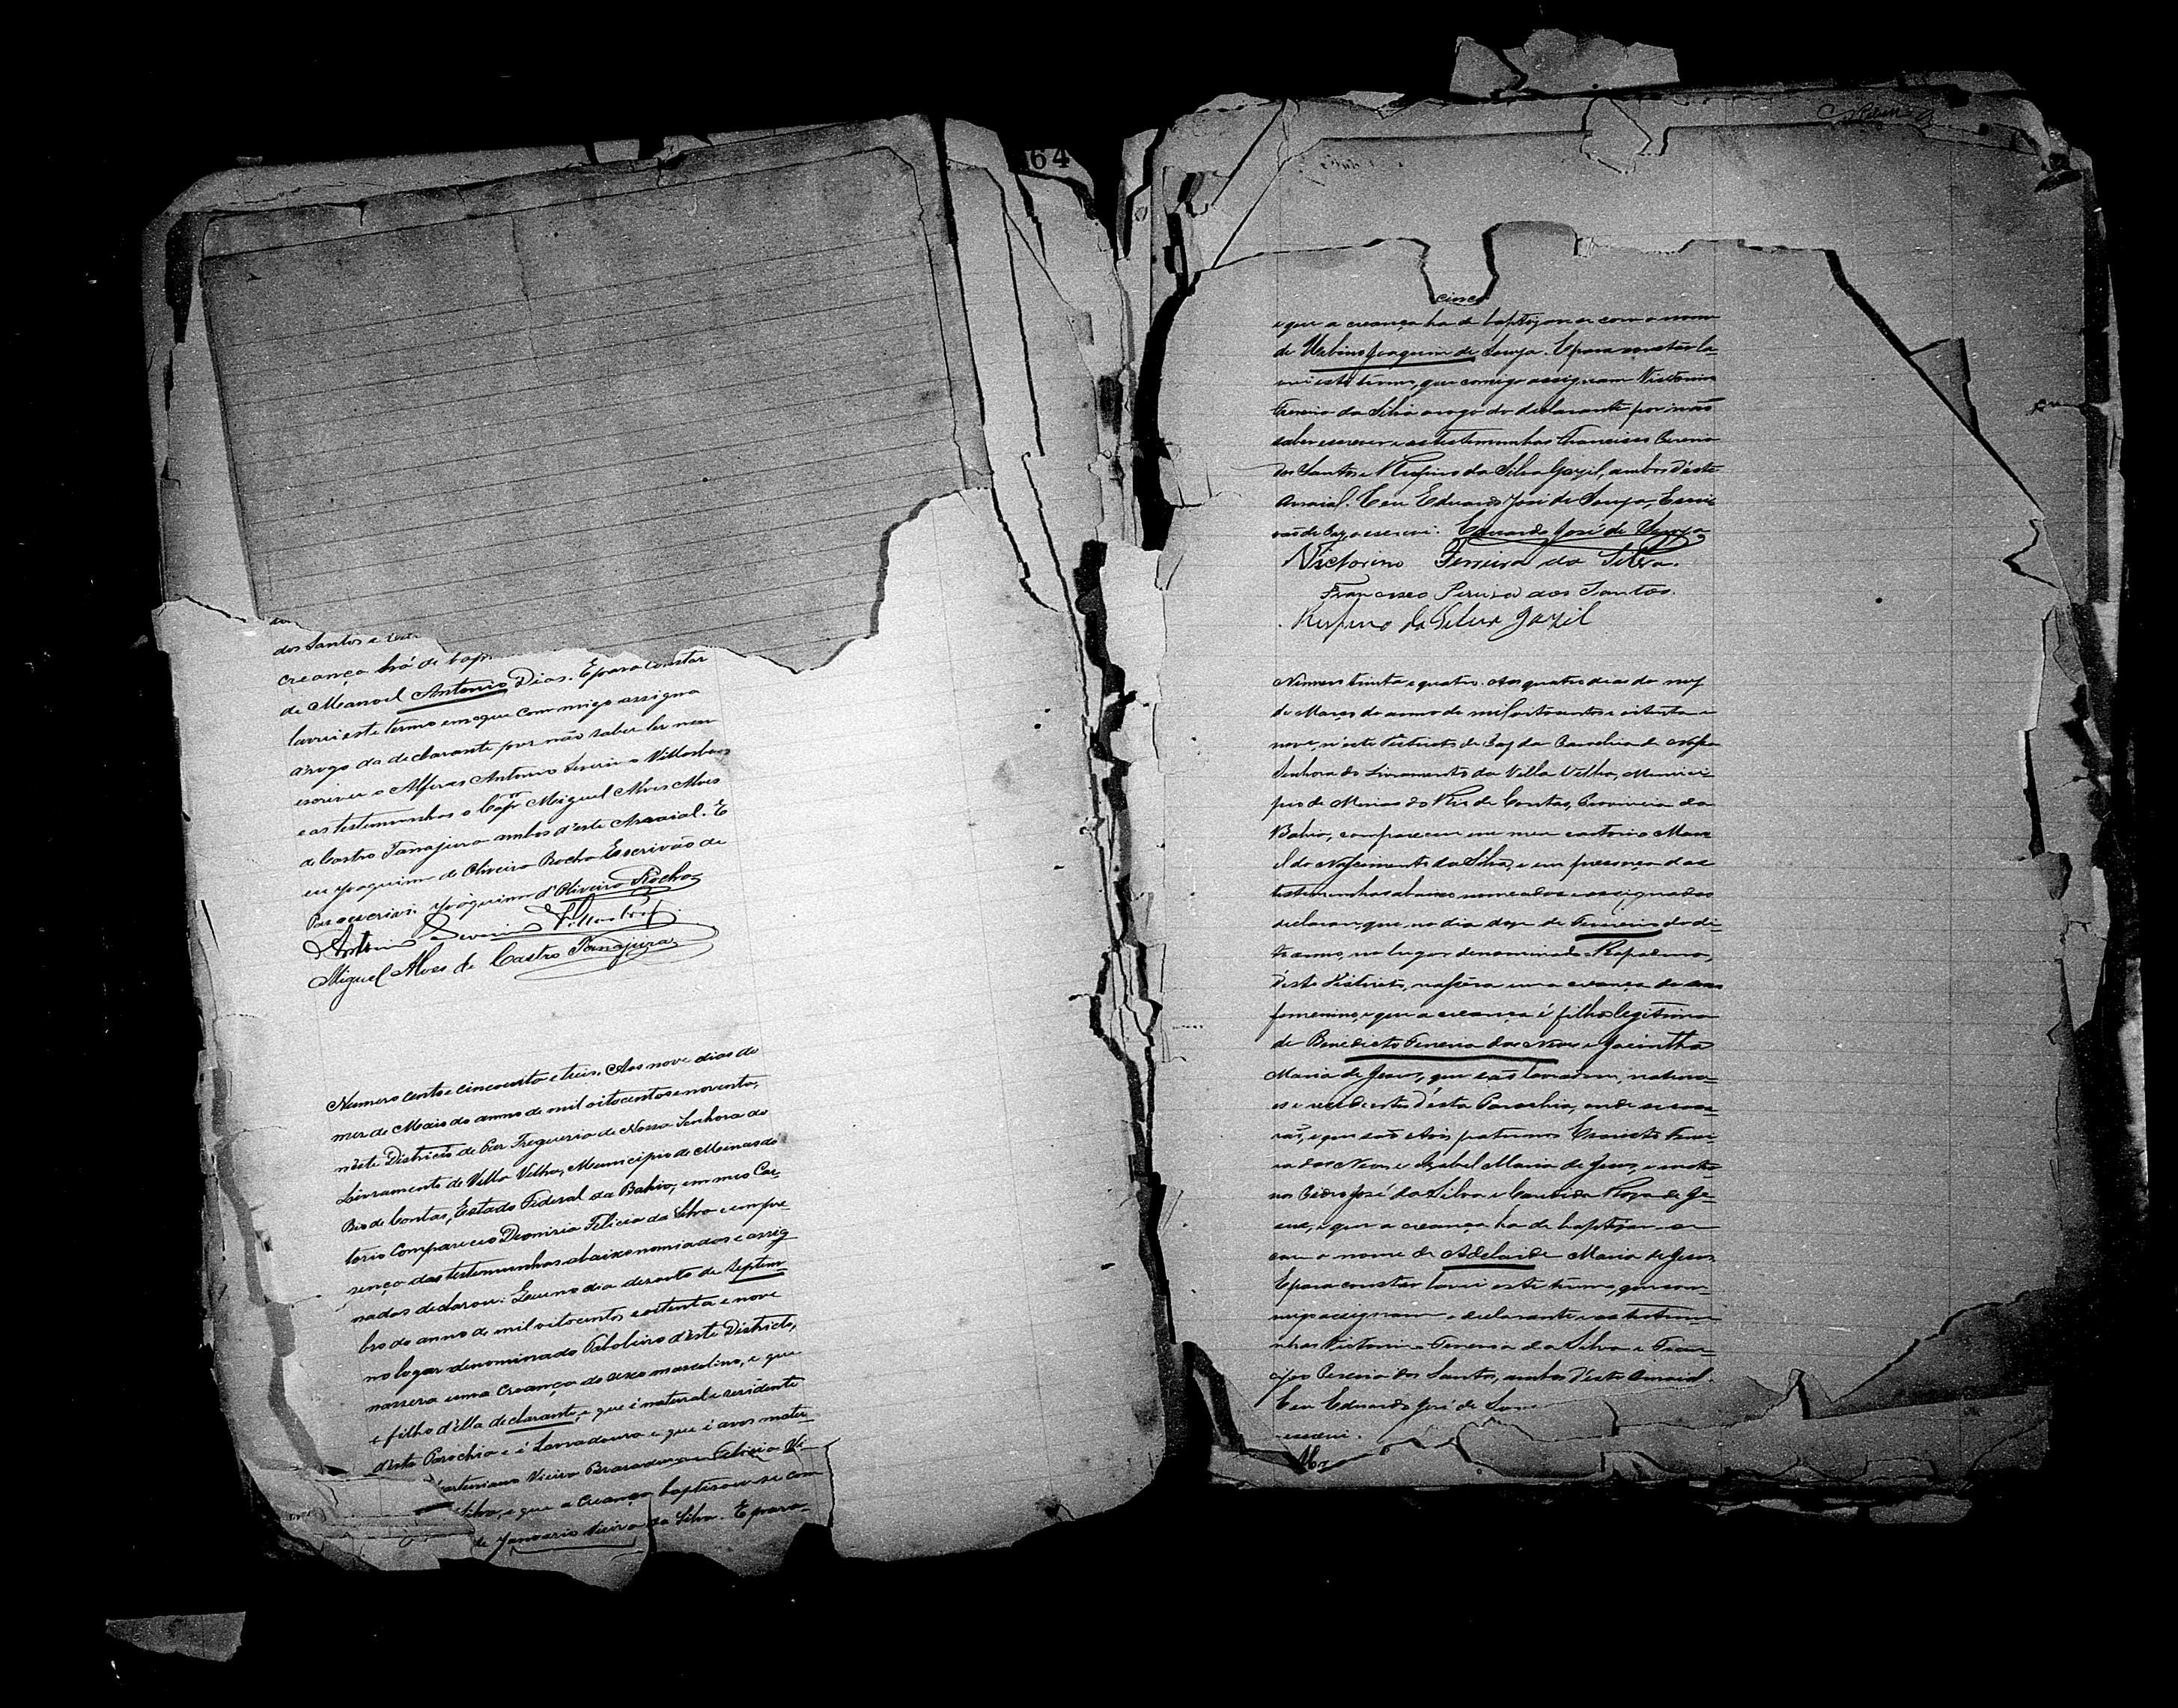 64
dos Santos e
creança há de bap
de Manoel Antonio Dias. E para constar
lavrei este termo em que commigo assigna
arogo da declarante por não saber ler nem
escrever o Alferes Antonio Severino Villasboas
e as testemunhas o Capm Miguel Alves Alves
de Castro Tanajura ambos d'este Arraial. E
eu Joaquim de Oliveira Rocha Escrivão de
Paz o escrivi. Joaquim d'Oliveira Rocha
Antonio Severino Villasboas
Miguel Alves de Castro Tanajura
Numero cento e cincoenta e treis. Aos nove dias do
mez de Maio do anno de mil oitocentos e noventa,
n'este Districto de Paz Freguesia de Nossa Senhora do
Livramento de Villa Velha, Municipio de Minas do
Rio de Contas, Estado Federal da Bahia, em meo Car-
torio Compareceo Dionizia Felicia da Silva e em pre-
sença das testemunhas abaixo nomiadas e assig
nadas declarou: Que no dia desoito de Septem-
bro do anno de mil oitocentos e oitenta e nove
no logar denominado Taboleiro d'este Districto,
nassera uma creança do sexo masculino, e que
e filho d'ella declarante, e que é natural e residente
d'esta Parochia e é Lavradoura e que é avos mater-
Vieira e Felicia Vi
Silva, e que a creança baptisou-se com
de Januario Vieira da Silva. E para
cinco
e que a creança ha de baptizar-se com o nome
de Urbino Joaquim de Souza. E para constar la-
vrei este termo, que comigo assignam Victorino
Ferreira da Silva arogo do declarante por não
saber escrever e as testemunhas Francisco Pereira
dos Santos e Rufino da Silva Gazil, ambos d'este
Arraial. E eu Eduardo José de Souza, Escri-
vão de Paz, o escrevi. Eduardo José de Souza
Victorino Ferreira da Silva.
Francisco Pereira dos Santos.
Rufino da Silva Gazil
Numero trinta e quatro. Aos quatro dias do mez
de Março do anno de mil oitocentos e oitenta e
nove, n'este Districto de Paz da Parochia de Nossa
Senhora do Livramento da Villa Velha, Munici-
pio de Minas do Rio de Contas, Provincia da
Bahia, compareceu em meu cartorio Mano
el do Nascimento da Silva, e em presença das
testemunhas abaixo nomeadas e assignadas
declarou, que no dia doze de Fevereiro do di-
to anno, no lugar denominado
d'este Districto, nascêra uma creança do sexo
femenino, e que a creança é filha legitima
de Benedicto Ferreira das Neves e Jacintha
Maria de Jesus, que são lavradores, natura-
es e residentes d'esta Parochia, onde se casa-
rão, e que são Avós paternos Ferrei-
ra das Neves e Izabel Maria de Jesus, e mater-
nos Pedro José da Silva e Candida Roza de Je-
sus, e que a creança ha de baptizar-se
com o nome de Adelaide Maria de Jesus.
E para constar lavrei este termo, que com-
migo assignam o declarante e as testemu-
nhas Victorino Ferreira da Silva e Fran-
cisco Pereira dos Santos, ambos d'este Arraial.
E eu Eduardo José de Souza
escrevi.